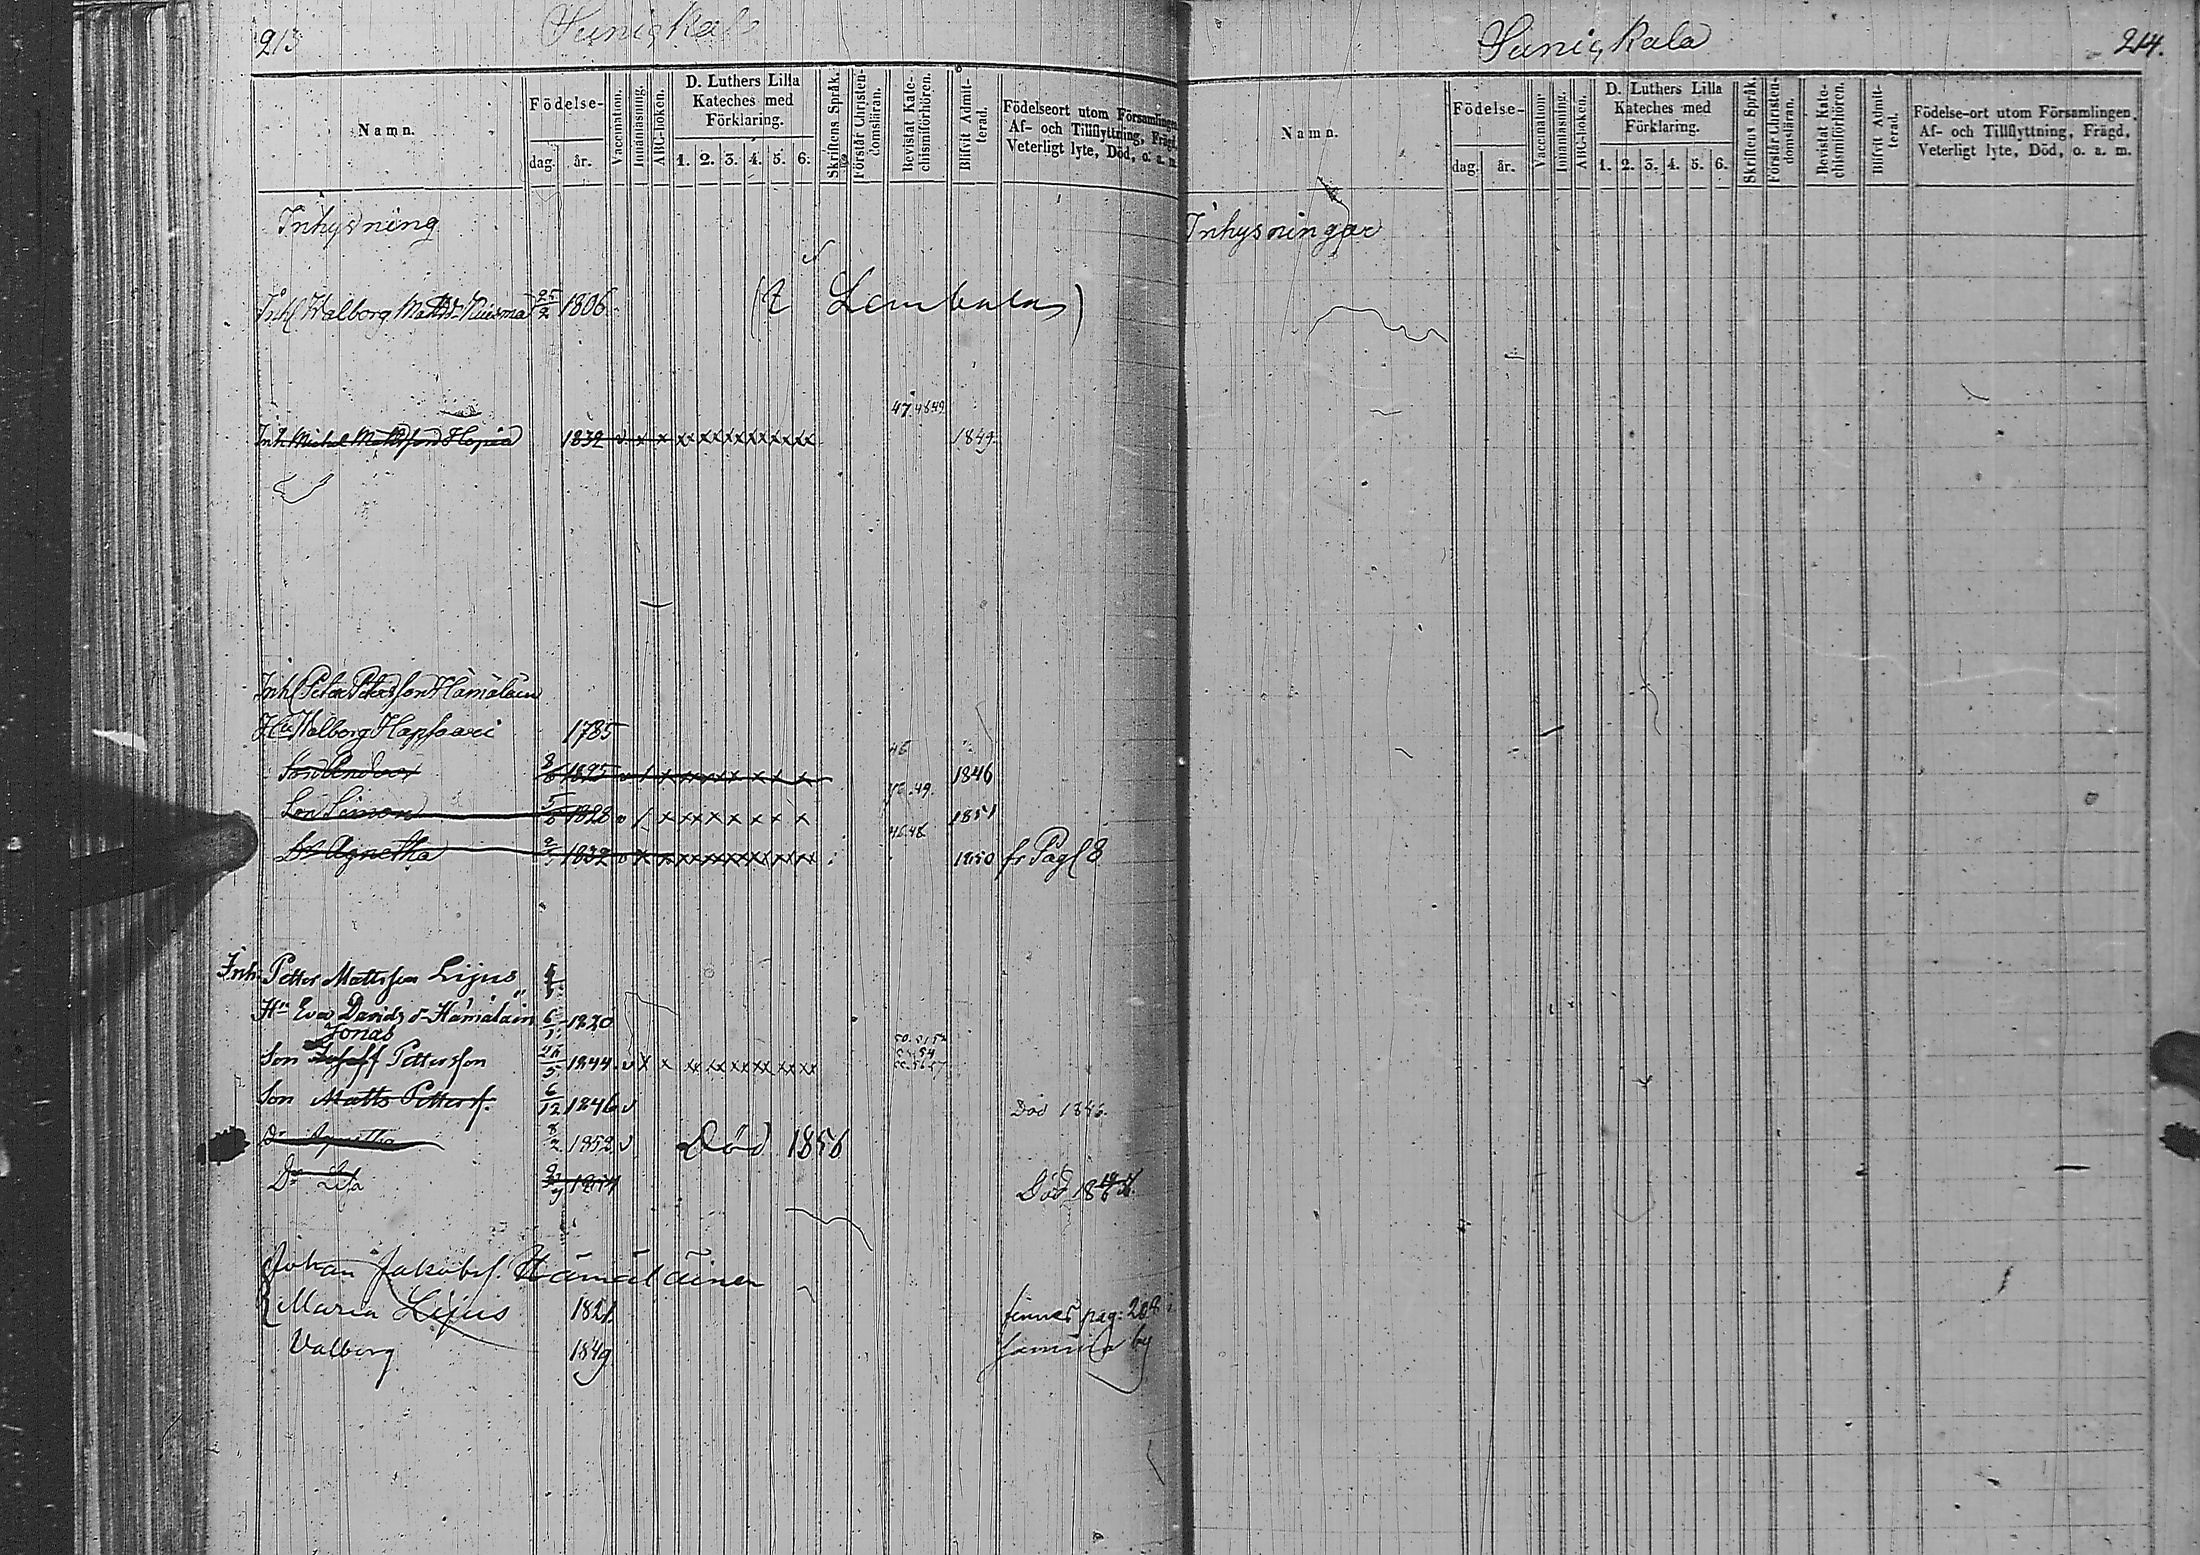 213
Sunigkala
Namn.
Födelse-
dag.
år.
Vaccination.
Innanläsning.
ABC-boken.
D. Luthers Lilla
Kateches med
Förklaring.
1. 2. 3. 4. 5. 6.
Skriftens Språk.
Förstår Christen-
domsläran.
Bevistat Kate-
chismiförhören.
Blifvit Admit-
terad.
Födelseort utom Församlingen
Af- och Tillflyttning, Frägd,
Veterligt lyte, Död, o. a. m.
Inhysning
Inh Walborg Mattsd. 25/2 1806 (t Lembala)
47 48 49
Inh. Michel Mattsson Hopia 1832 v x x xx xx xx xx xx xx 1849.
Inh Peter Petersson Hämäläin
Hu Walborg Haplaari 1785
46
Son Anders 8/8 1825 1846
46.49.
Son Simon 1828 1851
46.48
Dr Agnetha 1832 1850 fr Pag 8
Inh. Petter Mattsson Lijus
Hu Eva Davidsd. Hämäläin 6/1 1820
Jonas
Son Josef Pettersson 1844 v x x xx xx xx xx xx xx
Son Matts Petters. 6/12 1846 v Död 1846.
Dr Agnetha 8/2 1852 v Död 1856
Dr Lisa Död 18
Johan Jakobs. Hämäläinen
Maria Lijus 1821 finnes pag: 208 i
Valborg 1849 samma by
Sunigkala
214.
Namn.
Födelse-
dag.
år.
Vaccination.
Innanläsning.
ABC-boken.
D. Luthers Lilla
Kateches med
Förklaring.
1. 2. 3. 4. 5. 6.
Skriftens Språk.
Förstår Christen-
domsläran.
Bevistat Kate-
chismiförhören.
Blifvit Admit-
terad.
Födelse-ort utom Församlingen,
Af- och Tillflyttning, Frägd,
Veterligt lyte, Död, o. a. m.
Inhysningar